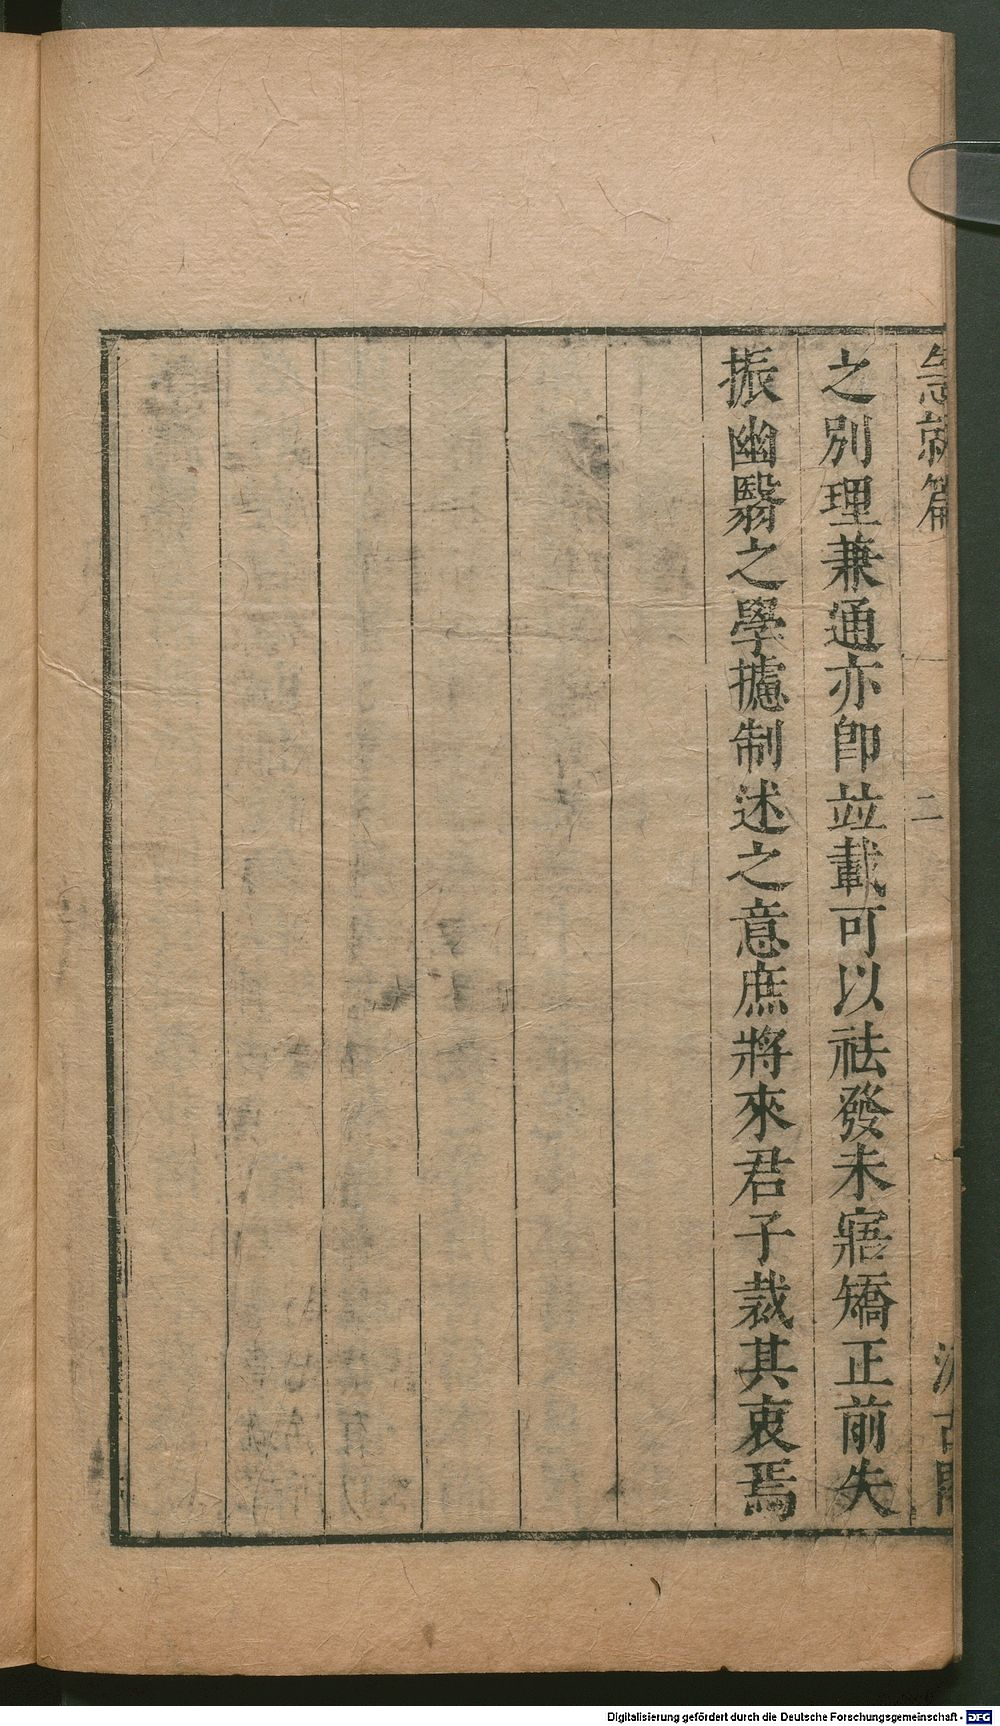 急就篇 二 汲古閣
之別理兼通亦卽竝載可以祛發未寤矯正前失
振幽翳之學攄制述之意庶將來君子裁其衷焉
Digitalisierung gefördert durch die Deutsche Forschungsgemeinschaft - DFG